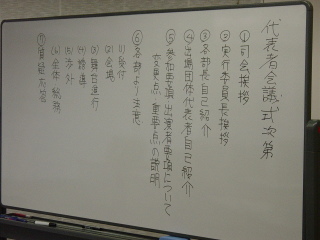 代表者会議式次第
①司会挨拶
②実行委員長挨拶
③各部長自己紹介
④出場団体代表者自己紹介
⑤参加要項、出演者要項について
変更点、重要点の説明
⑥各部より注意
(1)受付
(2)会場
(3)舞台進行
(4)誘導
(5)渉外
(6)全体総務
⑦質疑応答